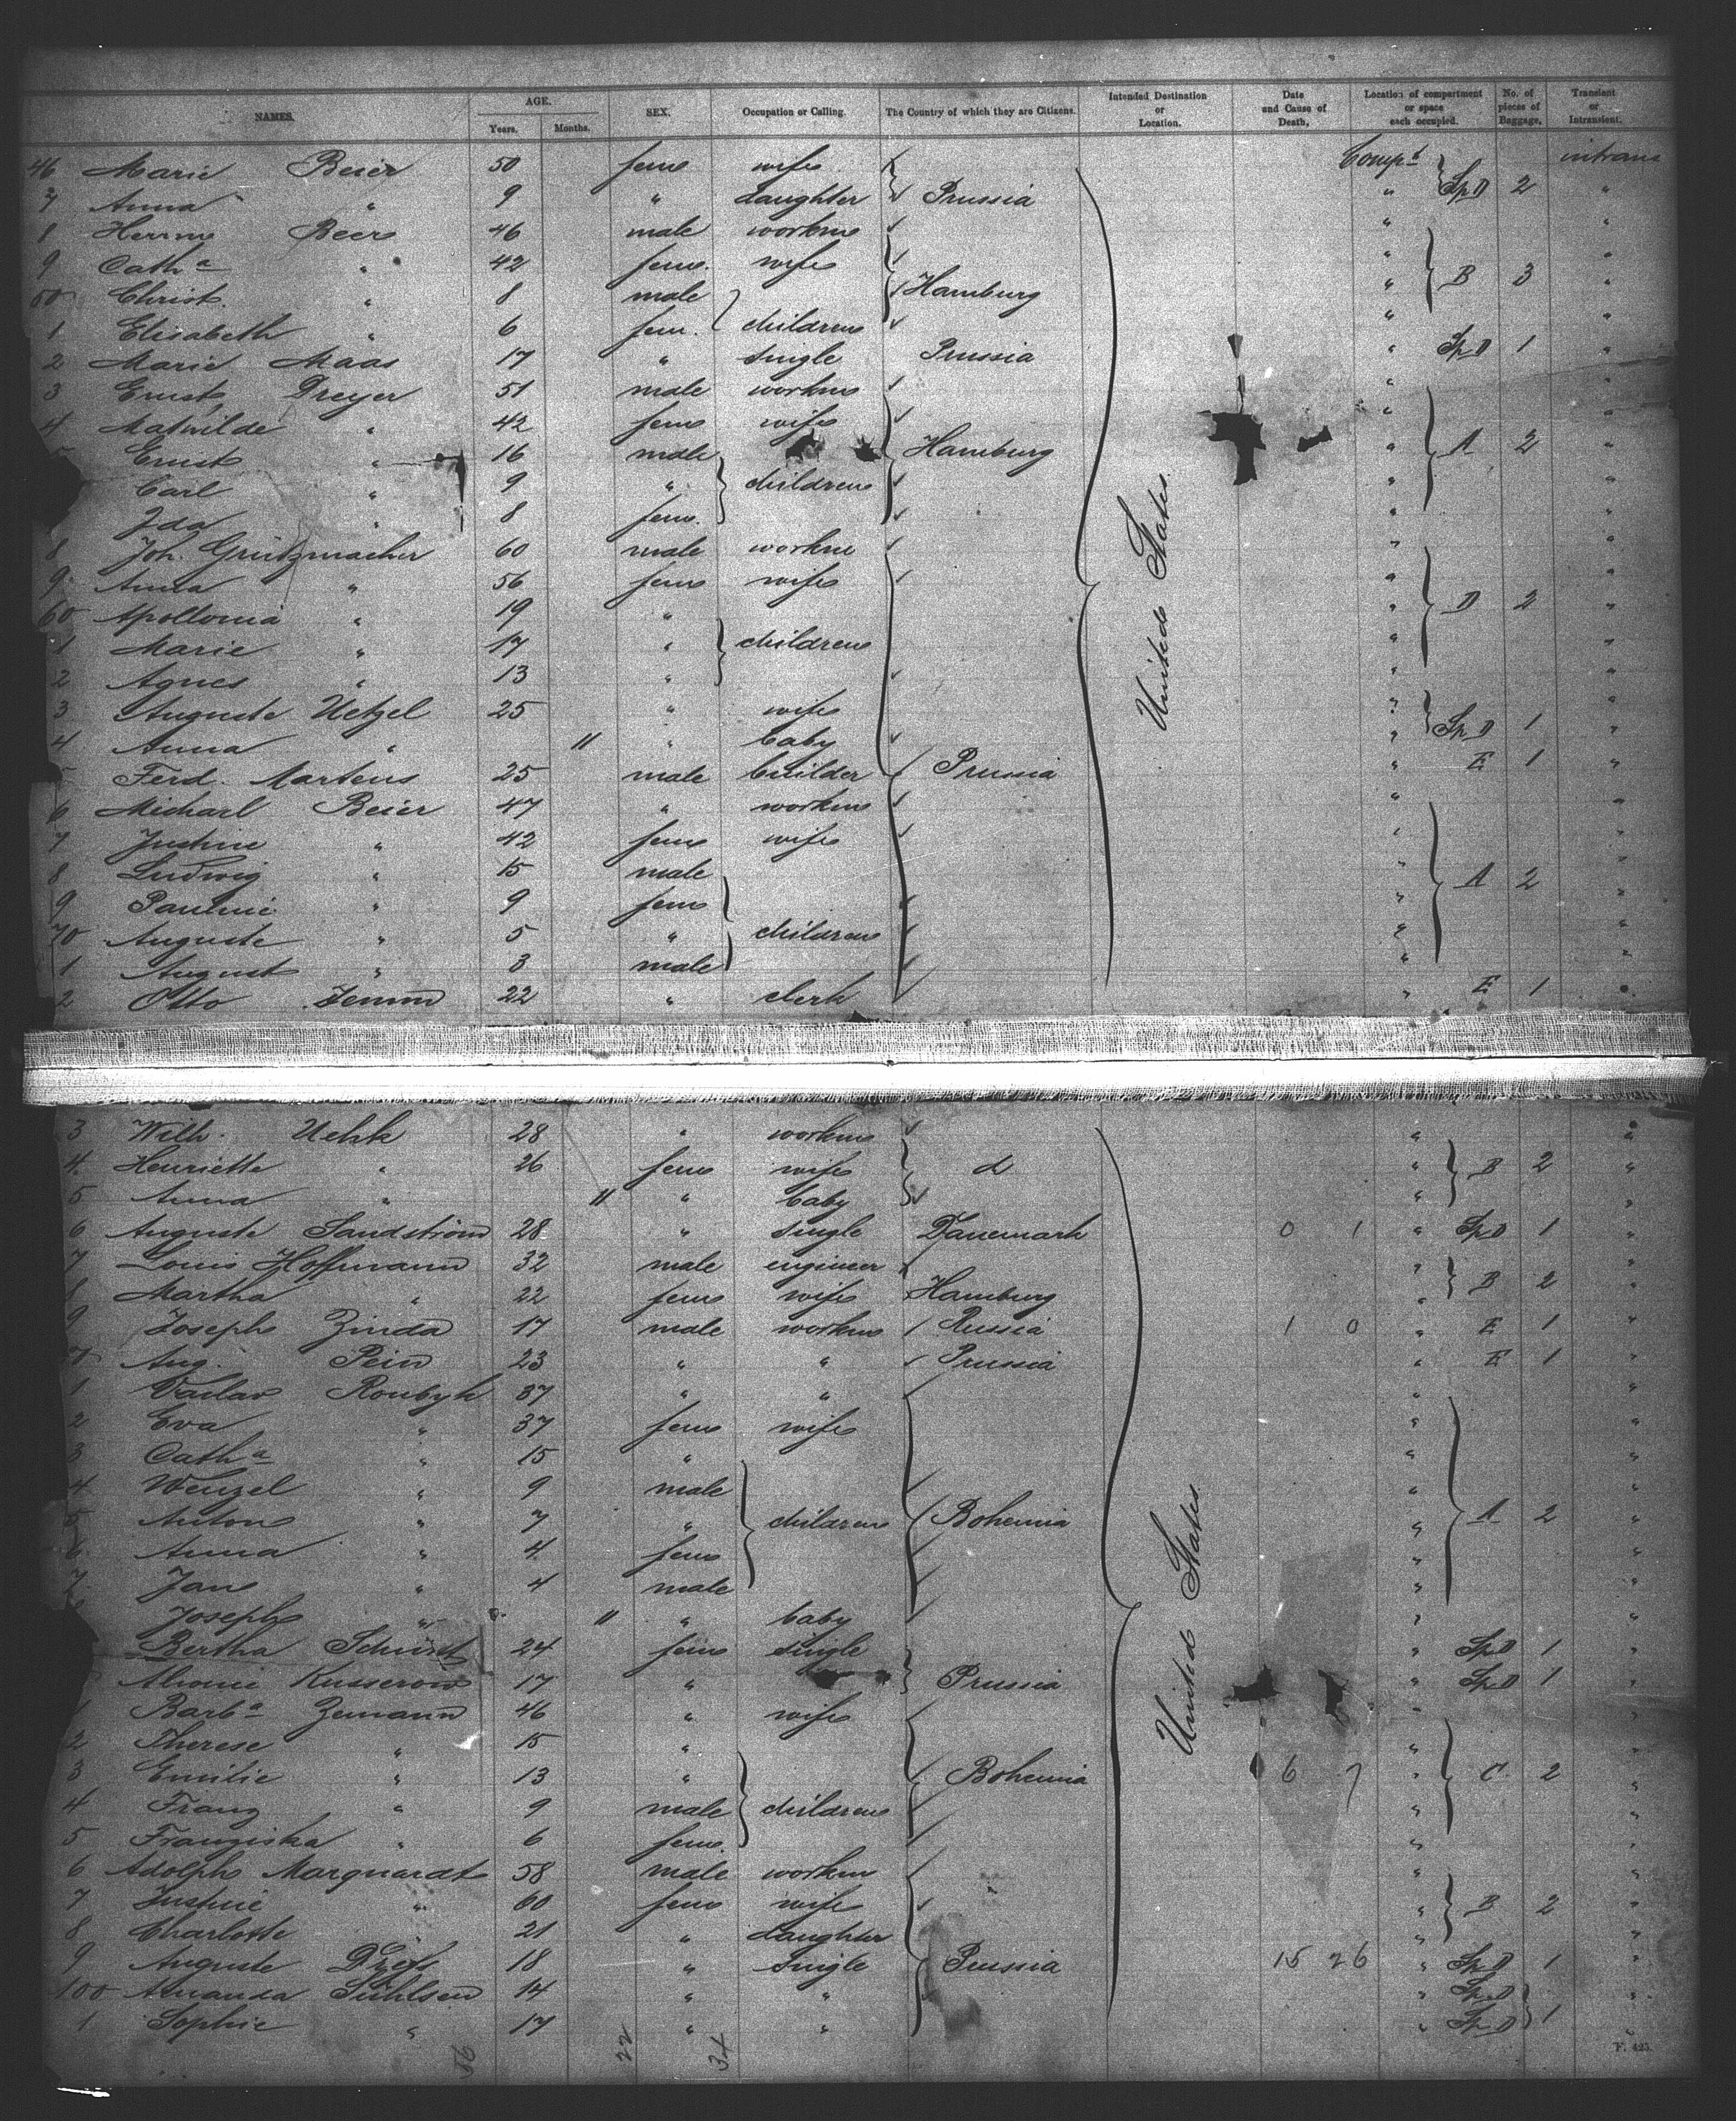 NAMES. AGE. Years. Months. SEX. Occupation or Calling. The Country of which they are Citizens. Intended Destination or Location. Date and Cause of Death. Location of compartment or space each occupied. No. of pieces of Baggage. Transient or Intransient.
46 Marie Beier 50 fem wife Compt intrans
7 Anna " 9 " daughter Prussia " Sp.D 2 "
8 Herrm Beer 46 male workm " "
9 Cath.a " 42 fem. wife " B 3 "
50 Christ. " 8 male Hamburg " "
1 Elisabeth " 6 fem. children " "
2 Marie Maas 17 " single Prussia " Sp.D 1 "
3 Ernst Dreyer 51 male workm " "
4 Mathilde " 42 fem wife " "
Ernst " 16 male Hamburg " A 2 "
Carl " 9 " children " "
Ida " 8 fem. " "
8 Joh. Grützmacher 60 male workm " "
9 Anna " 56 fem wife " "
60 Apollonia " 19 " " D 2 "
1 Marie " 17 " children " "
2 Agnes " 13 " " "
3 Auguste Uetzel 25 " wife " Sp.D 1 "
4 Anna " 11 " baby " "
Ferd. Martens 25 male builder Prussia " E 1 "
6 Michael Beier 47 " workm " "
7 Justine " 42 fem wife " "
8 Ludwig " 15 male " A 2 "
9 Pauline " 9 fem " "
70 Auguste " 5 " children " "
1 August " 3 male " "
2 Otto 22 " clerk " E 1 "
United States
3 Wilh. 28 " workm " "
4 Henriette " 26 fem wife d " B 2 "
5 Anna " 11 " baby " "
6 Auguste Sandström 28 " single Danemark 0 1 " Sp.D 1 "
7 Louis Hoffmann 32 male engineer " "
8 Martha " 22 fem wife Hamburg " B 2 "
9 Joseph Zinda 17 male workm Russia 1 0 " E 1 "
Aug. Pein 23 " " Prussia " E 1 "
1 Vaclav Roubyk 37 " " " "
2 Eva " 37 fem wife " "
3 Cath.a " 15 " " "
4 Wenzel " 9 male " "
5 Anton " 7 " children Bohemia " A 2 "
6 Anna " 4 fem " "
7 Jan " 4 male " "
Joseph " 11 " baby " "
Bertha 24 fem single " Sp.D 1 "
Kusserow 17 " Prussia " Sp.D 1 "
1 Barb.a Zemann 46 " wife " "
2 Therese " 15 " " "
3 Emilie " 13 " Bohemia 6 7 " C 2 "
4 Franz " 9 male children " "
5 Franziska " 6 fem. " "
6 Adolph Marquardt 58 male workm " "
7 Justine " 60 fem wife " B 2 "
8 Charlotte " 21 " daughter " "
9 Auguste 18 " single Prussia 15 26 " Sp.D 1 "
100 Amanda Suhlsen 14 " " " Sp.D "
1 Sophie " 17 " " " Sp.D 1 "
United States
56 22 34
F. 425.